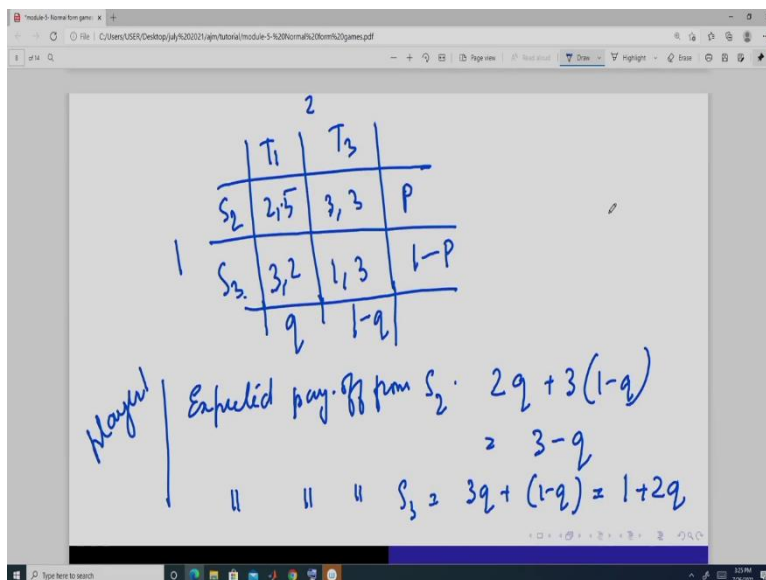 *module-5- Normal form game
File | C:/Users/USER/Desktop/july%202021/ajm/tutorial/module-5-%20Normal%20form%20games.pdf
8 of 14 Page view Read aloud Draw Highlight Erase
2
T1 T3
S2 2,5 3,3 P
1 S3. 3,2 1,3 1-P
q 1-q
player 1
Expected pay-off from S2. 2q + 3(1-q)
= 3-q
" " " S3 = 3q + (1-q) = 1+2q
Type here to search 3:25 PM